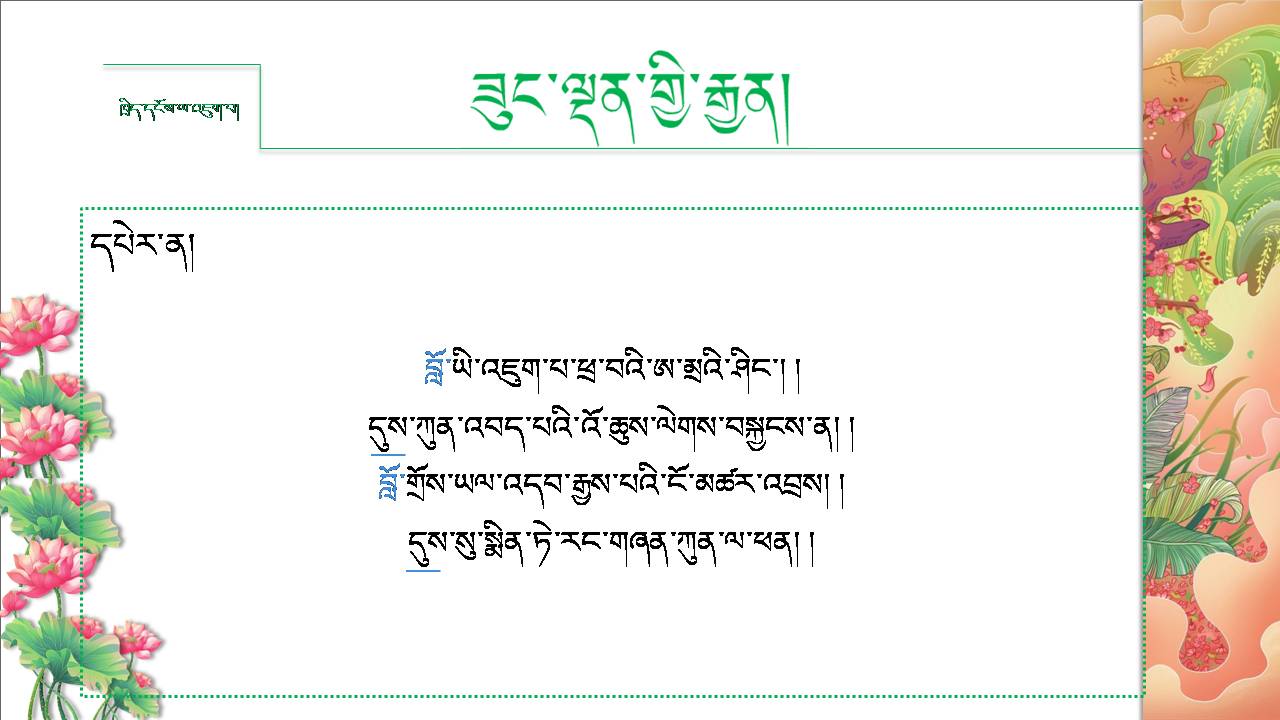 ཟུང་ལྡན་གྱི་རྒྱན།
ཁྲིད་དངོས་ལ་འཇུག་པ།
དཔེར་ན།
བློ་ཡི་འཇུག་པ་ཕྲ་བའི་ཨ་མྲའི་ཤིང་། །
དུས་ཀུན་འབད་པའི་འོ་ཆུས་ལེགས་བསྐྱངས་ན། །
བློ་གྲོས་ཡལ་འདབ་རྒྱས་པའི་ངོ་མཚར་འབྲས། །
དུས་སུ་སྨིན་ཏེ་རང་གཞན་ཀུན་ལ་ཕན། །